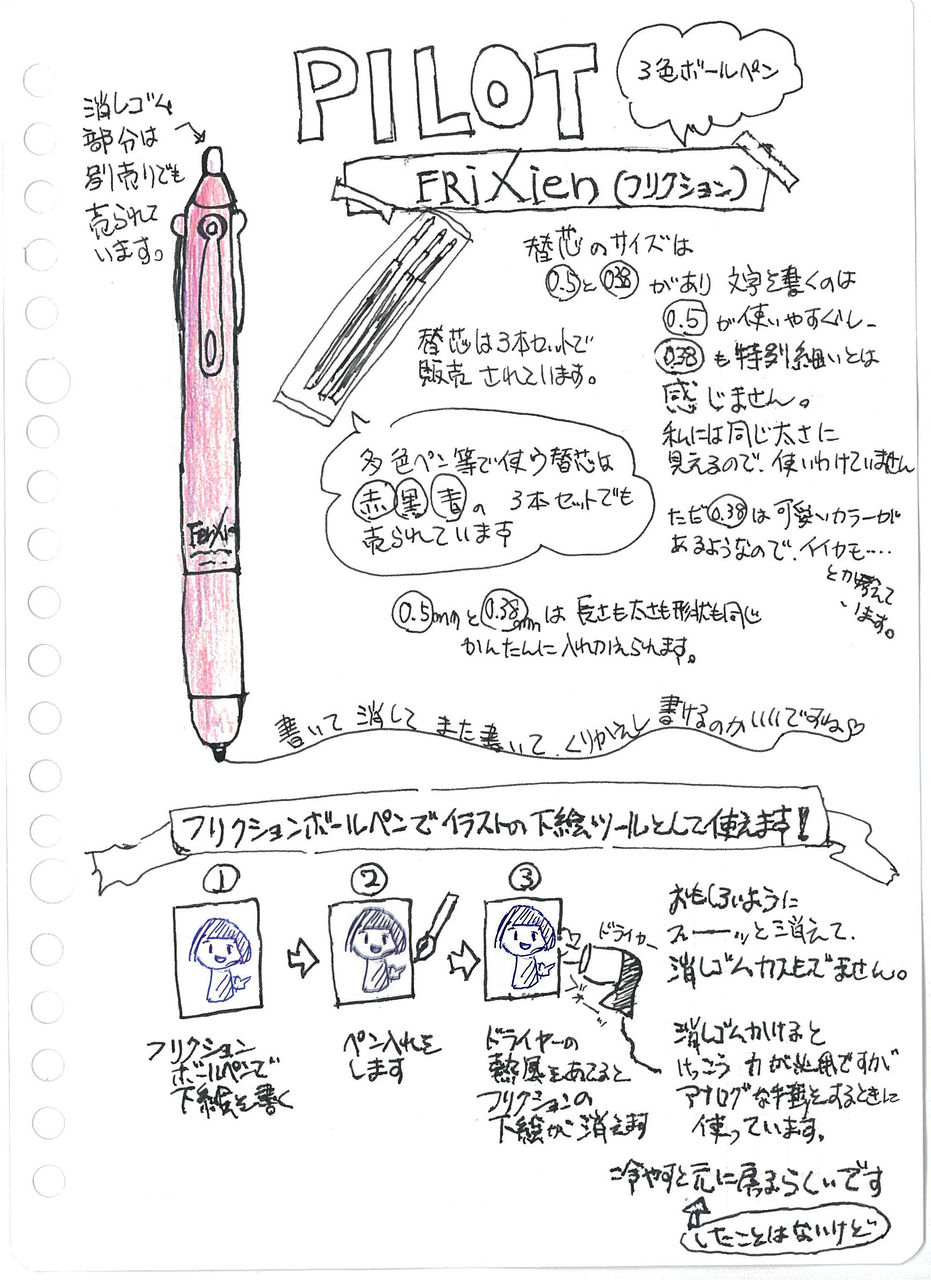 PILOT
3色ボールペン
FRiXien (フリクション)
消しゴム
部分は
別売りでも
売られて
います。
替芯のサイズは
0.5と0.38があり 文字を書くのは
0.5が使いやすくし
0.38も特別細いとは
感じません。
私には同じ太さに
見えるので、使いわけていません
ただ0.38は可愛いカラーが
あるようなので、イイカモ....
とか考えて
います。
替芯は3本セットで
販売されています。
多色ペン等で使う替芯は
赤黒青の 3本セットでも
売られています
FRiXi
0.5mmと0.38mmは 長さも太さも形状も同じ
かんたんに入れかえられます。
書いて 消して また書いて、くりかえし 書けるのがいいですね♡
フリクションボールペンでイラストの下絵ツールとして使えます!
①
②
③
フリクション
ボールペンで
下絵を書く
ペン入れを
します
ドライヤー
ブオーッ
ドライヤーの
熱風をあてると
フリクションの
下絵が消えます
おもしろいように
スーーッと消えて、
消しゴムカスもでません。
消しゴムかけると
けっこう力が必用ですが
アナログな手法をするときに
使っています。
冷やすと元に戻るらしいです
したことはないけど